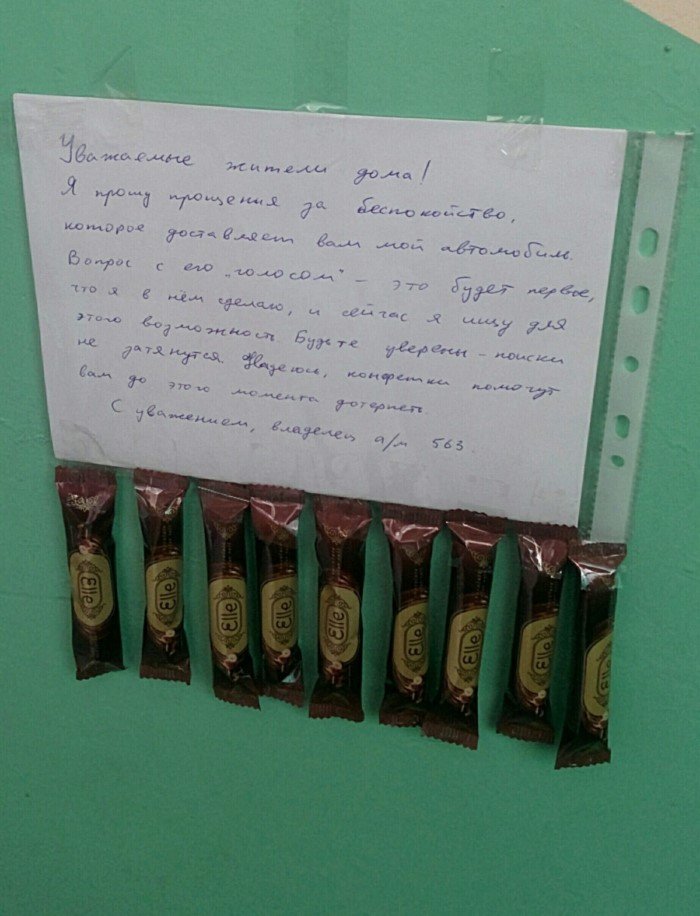 Уважаемые жители дома!
Я прошу прощения за беспокойство,
которое доставляет вам мой автомобиль.
Вопрос с его „голосом“ – это будет первое,
что я в нём сделаю, и сейчас я ищу для
этого возможность. Будьте уверены – поиски
не затянутся. Надеюсь, конфетки помогут
вам до этого момента дотерпеть.
С уважением, владелец а/м 563
Elle
Elle
Elle
Elle
Elle
Elle
Elle
Elle
Elle